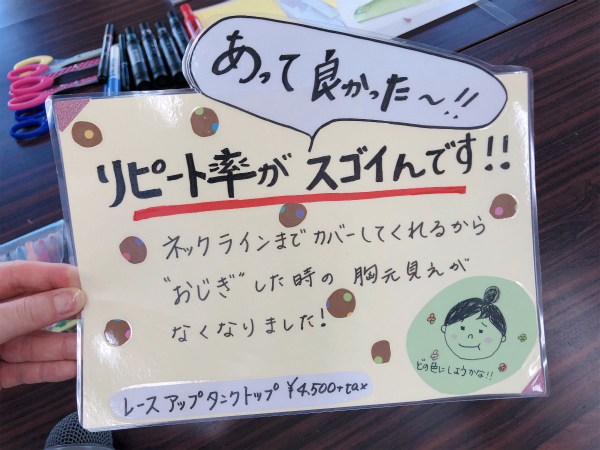 あって良かった～!!
リピート率がスゴイんです!!
ネックラインまでカバーしてくれるから
"おじぎ"した時の胸元見えが
なくなりました!
どの色にしようかな!!
レースアップタンクトップ ¥4,500+tax